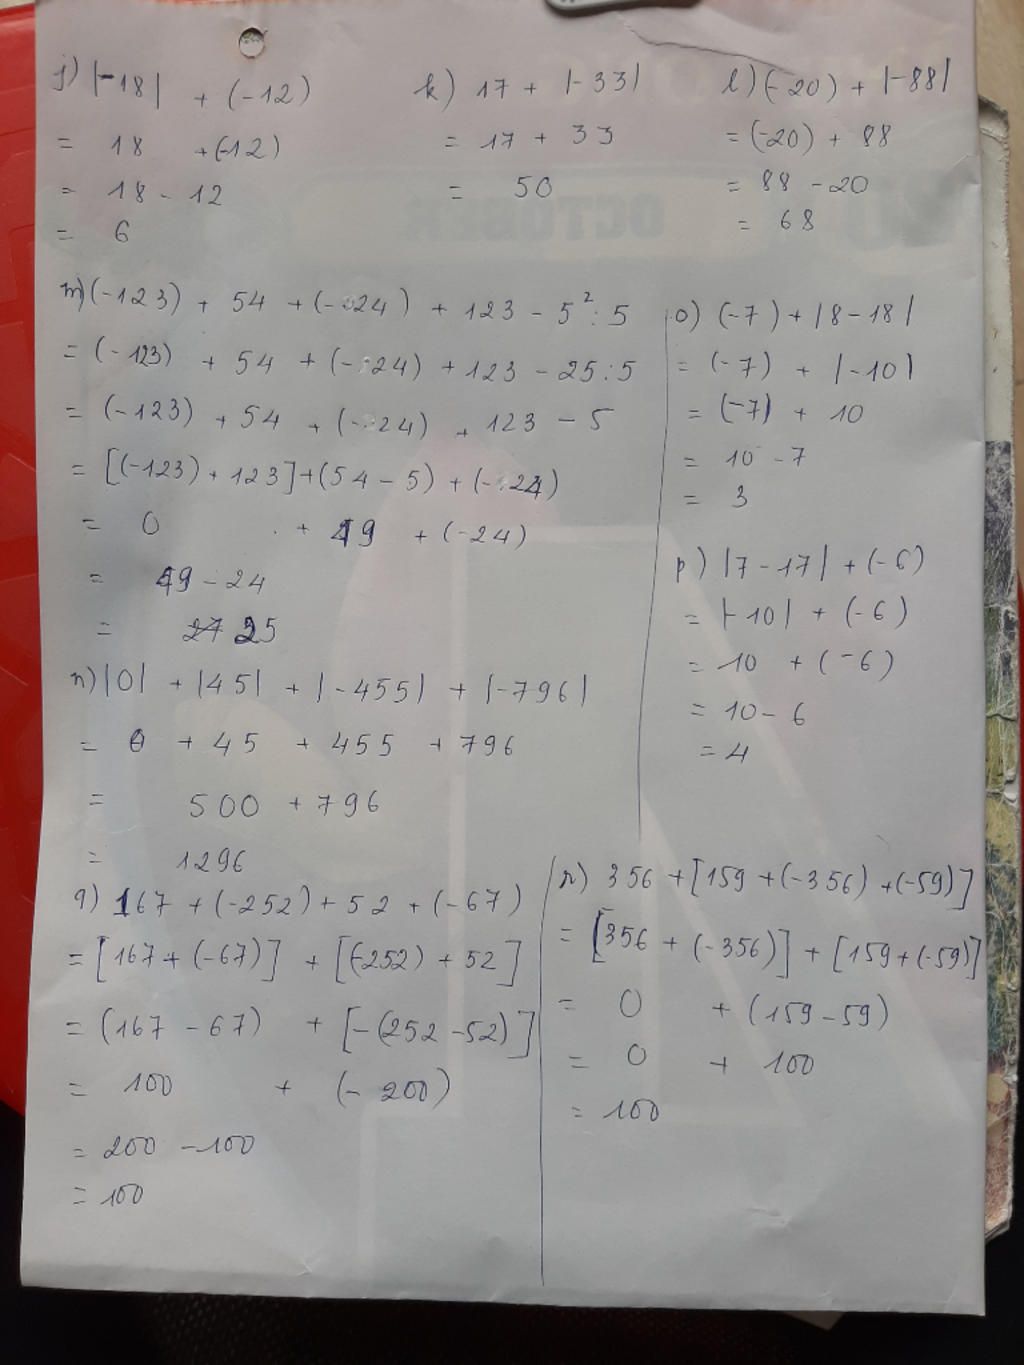 j) |-18| + (-12)
= 18 + (-12)
= 18 - 12
= 6
k) 17 + |-33|
= 17 + 33
= 50
l) (-20) + |-88|
= (-20) + 88
= 88 - 20
= 68
OCTOBER
m) (-123) + 54 + (-24) + 123 - 5² : 5
= (-123) + 54 + (-24) + 123 - 25 : 5
= (-123) + 54 + (-24) + 123 - 5
= [(-123) + 123] + (54 - 5) + (-24)
= 0 + 49 + (-24)
= 49 - 24
= 27 25
n) |0| + |45| + |-455| + |-796|
= 0 + 45 + 455 + 796
= 500 + 796
= 1296
o) (-7) + |8 - 18|
= (-7) + |-10|
= (-7) + 10
= 10 - 7
= 3
p) |7 - 17| + (-6)
= |-10| + (-6)
= 10 + (-6)
= 10 - 6
= 4
q) 167 + (-252) + 52 + (-67)
= [167 + (-67)] + [(-252) + 52]
= (167 - 67) + [-(252 - 52)]
= 100 + (- 200)
= 200 - 100
= 100
r) 356 + [159 + (-356) + (-59)]
= [356 + (-356)] + [159 + (-59)]
= 0 + (159 - 59)
= 0 + 100
= 100